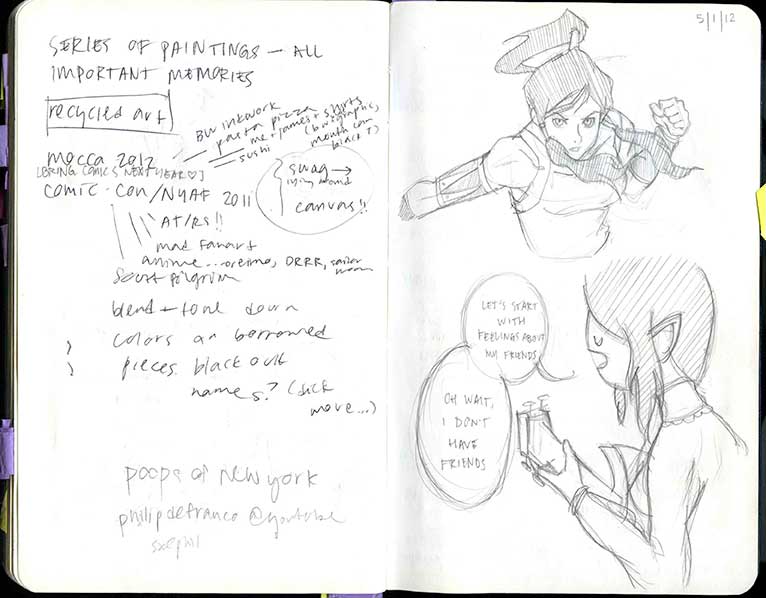 SERIES OF PAINTINGS — ALL
IMPORTANT MEMORIES
recycled art
mocca 2012
BW inkwork
pasta pizza
me + james + shirts
sushi
(bographic,
mouth com
black ?)
[BRING COMICS NEXT YEAR ♡]
COMIC-CON/NYAF 2011
swag →
lying around
canvas!!
AT/RS!!
mad fanart
anime... oreimo, DRRR, sailor
moon
Scott pilgrim
blend + tone down
colors on borrowed
pieces. black out
names? (dick
move...)
poops of new york
philipdefranco @youtube
sxephil
5/1/12
LET'S START
WITH
FEELINGS ABOUT
MY FRIENDS
OH WAIT,
I DON'T
HAVE
FRIENDS